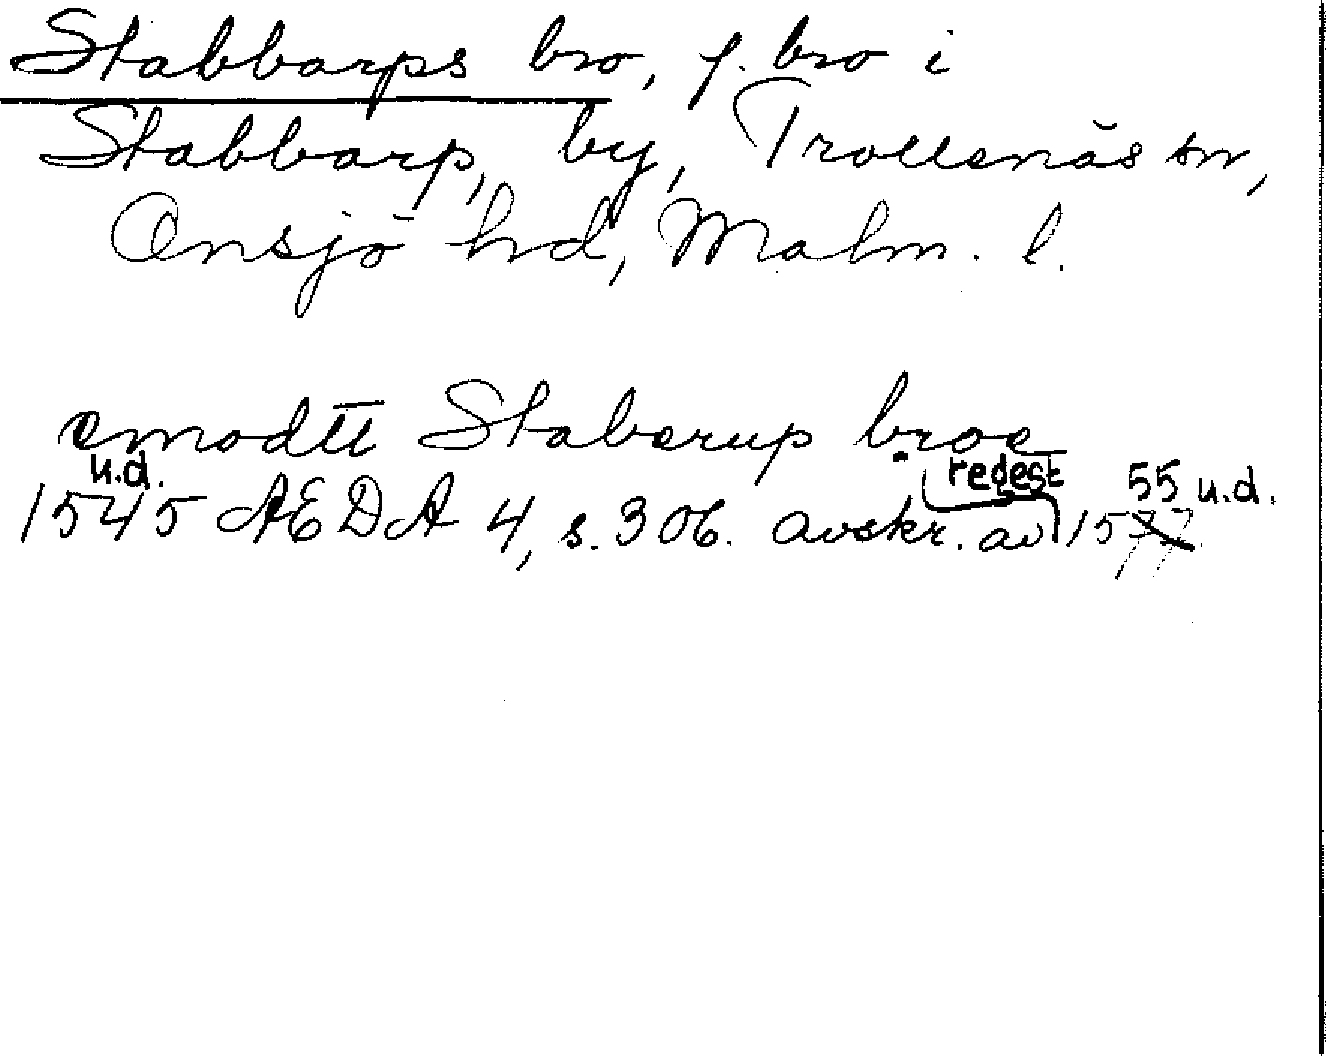 Stabbarps bro, f. bro i
Stabbarp, by, Trollenäs sn,
Onsjö hd, Malm. l.
emodtt Staberup broe
u.d. redest 55 u.d.
1545 ÆDA 4, s. 306. Avskr. av 1577